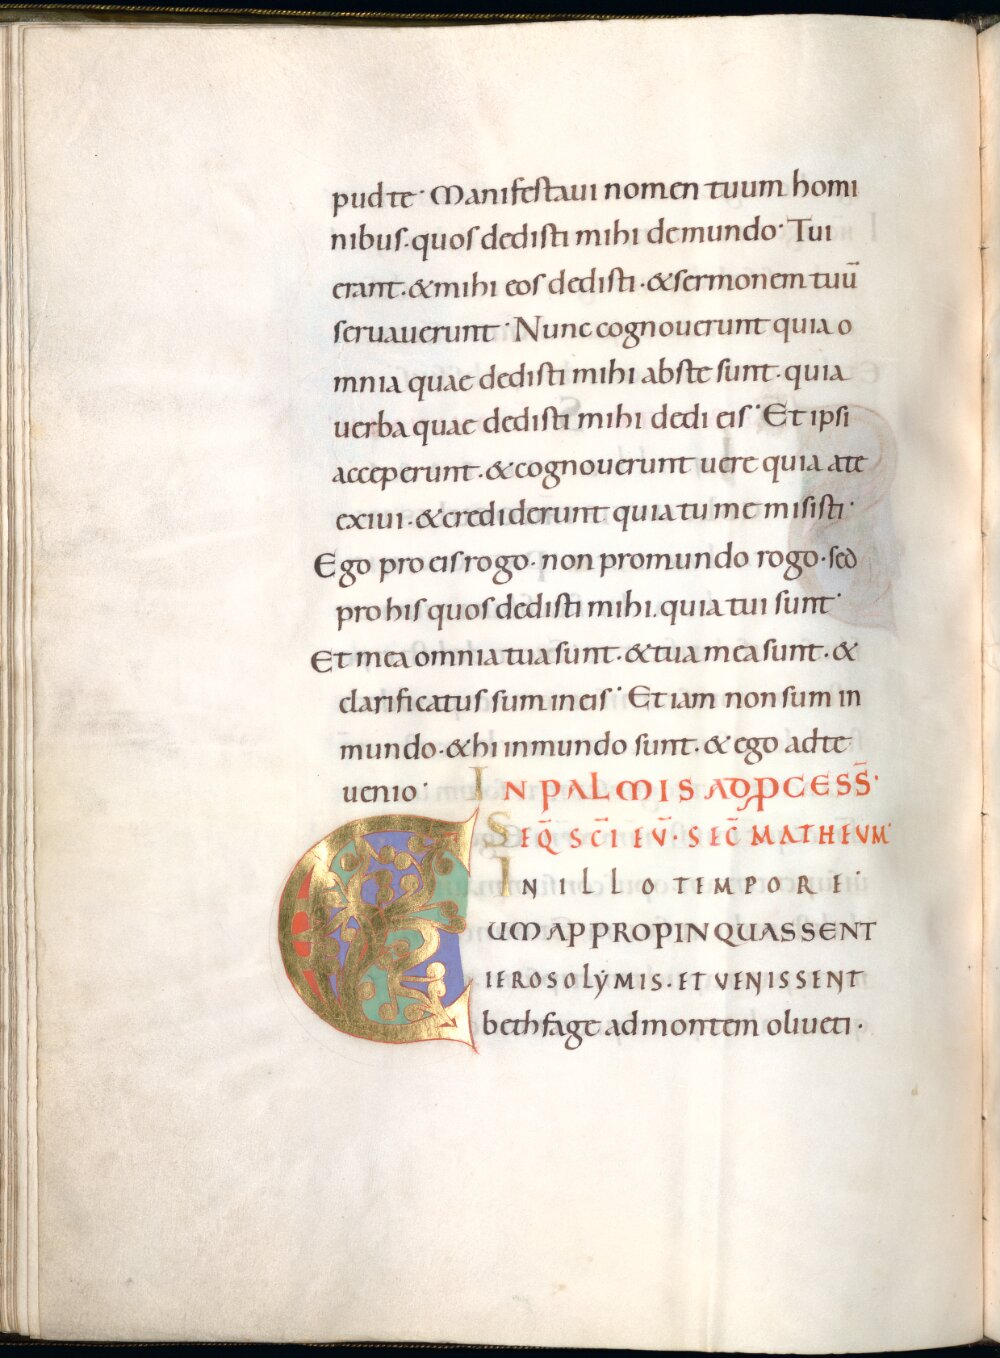 pud te· Manifestaui nomen tuum homi
nibus· quos dedisti mihi de mundo· Tui
erant· & mihi eos dedisti· & sermonem tuū
seruauerunt· Nunc cognouerunt quia o
mnia quae dedisti mihi abs te sunt· quia
uerba quae dedisti mihi dedi eis· Et ipsi
acceperunt· & cognouerunt uere quia a te
exiui· & crediderunt quia tu me misisti·
Ego pro eis rogo· non pro mundo rogo· sed
pro his quos dedisti mihi· quia tui sunt·
Et mea omnia tua sunt· & tua mea sunt· &
clarificatus sum in eis· Et iam non sum in
mundo· & hi in mundo sunt· & ego ad te
uenio·
IN PALMIS AD PCESS̄·
SEQ̄ SC̄I EV̄· SEC̄ MATHEVM·
IN ILLO TEMPORE·
CUM APPROPINQUASSENT
IEROSOLYMIS· ET VENISSENT
bethfage ad montem oliueti·